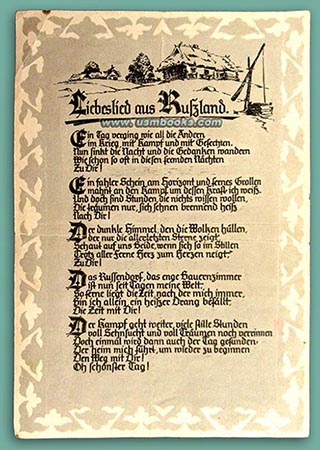 Liebeslied aus Rußland.
www.usmbooks.com
Ein Tag verging wie all die Andern
Im Krieg mit Kampf und mit Gefechten.
Nun sinkt die Nacht und die Gedanken wandern
Wie schon so oft in diesen fremden Nächten
Zu Dir!
Ein fahler Schein am Horizont und fernes Grollen
mahnt an den Kampf um dessen Kraft ich weiß.
Und doch sind Stunden die nichts wissen wollen,
Die träumen nur, sich sehnen brennend heiß
Nach Dir!
Der dunkle Himmel, den die Wolken hüllen,
der nur die allerletzten Sterne zeigt,
Schaut auf uns Beide, wenn sich so im Stillen
Trotz aller Ferne Herz zum Herzen neigt
Zu Dir!
Das Russendorf, das enge Bauernzimmer
ist nun seit Tagen meine Welt,
So ferne liegt die Zeit nach der mich immer,
Bin ich allein, ein heißer Drang befällt:
Die Zeit mit Dir!
Der Kampf geht weiter, viele stille Stunden
voll Sehnsucht und voll Träumen noch verrinnen
Doch einmal wird dann auch der Tag gefunden
Der heim mich führt, um wieder zu beginnen
Den Weg mit Dir!
Oh schönster Tag!